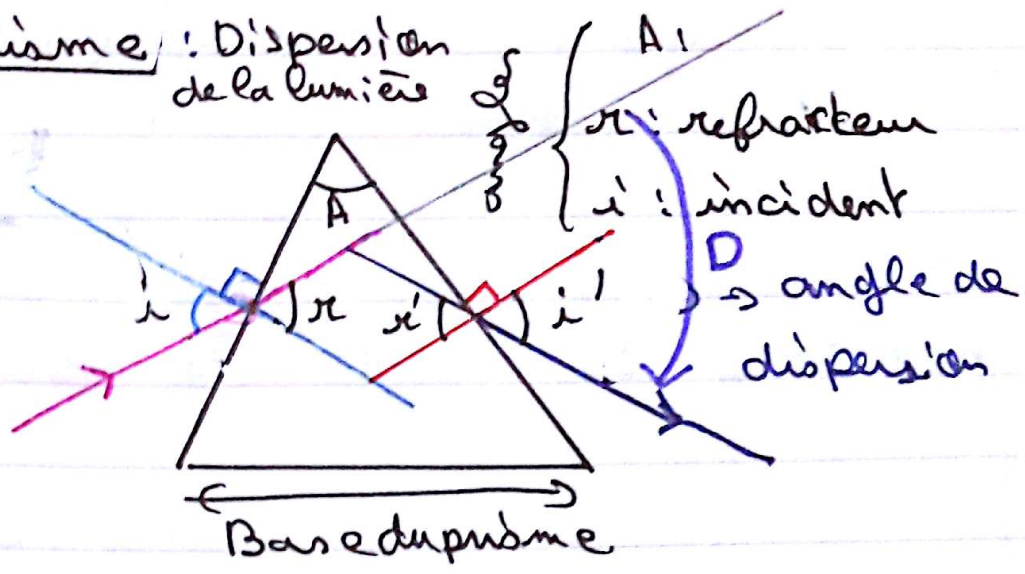 isme : Dispersion
de la lumière
A :
r : refracteur
i : incident
A
D
i
r
r'
i'
→ angle de
dispersion
Base du prisme